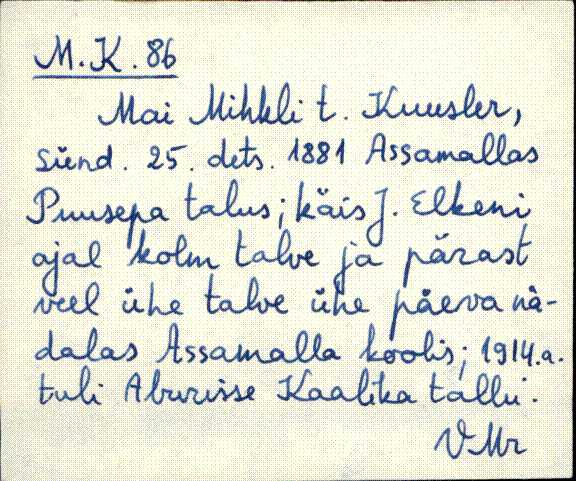 M.K. 86
Mai Mihkli t. Kuusler,
sünd. 25. dets. 1881 Assamallas
Puusepa talus; käis J. Elkeni
ajal kolm talve ja pärast
veel ühe talve ühe päeva nä-
dalas Assamalla koolis; 1914.a.
tuli Aburisse Kaalika tallu.
VMr